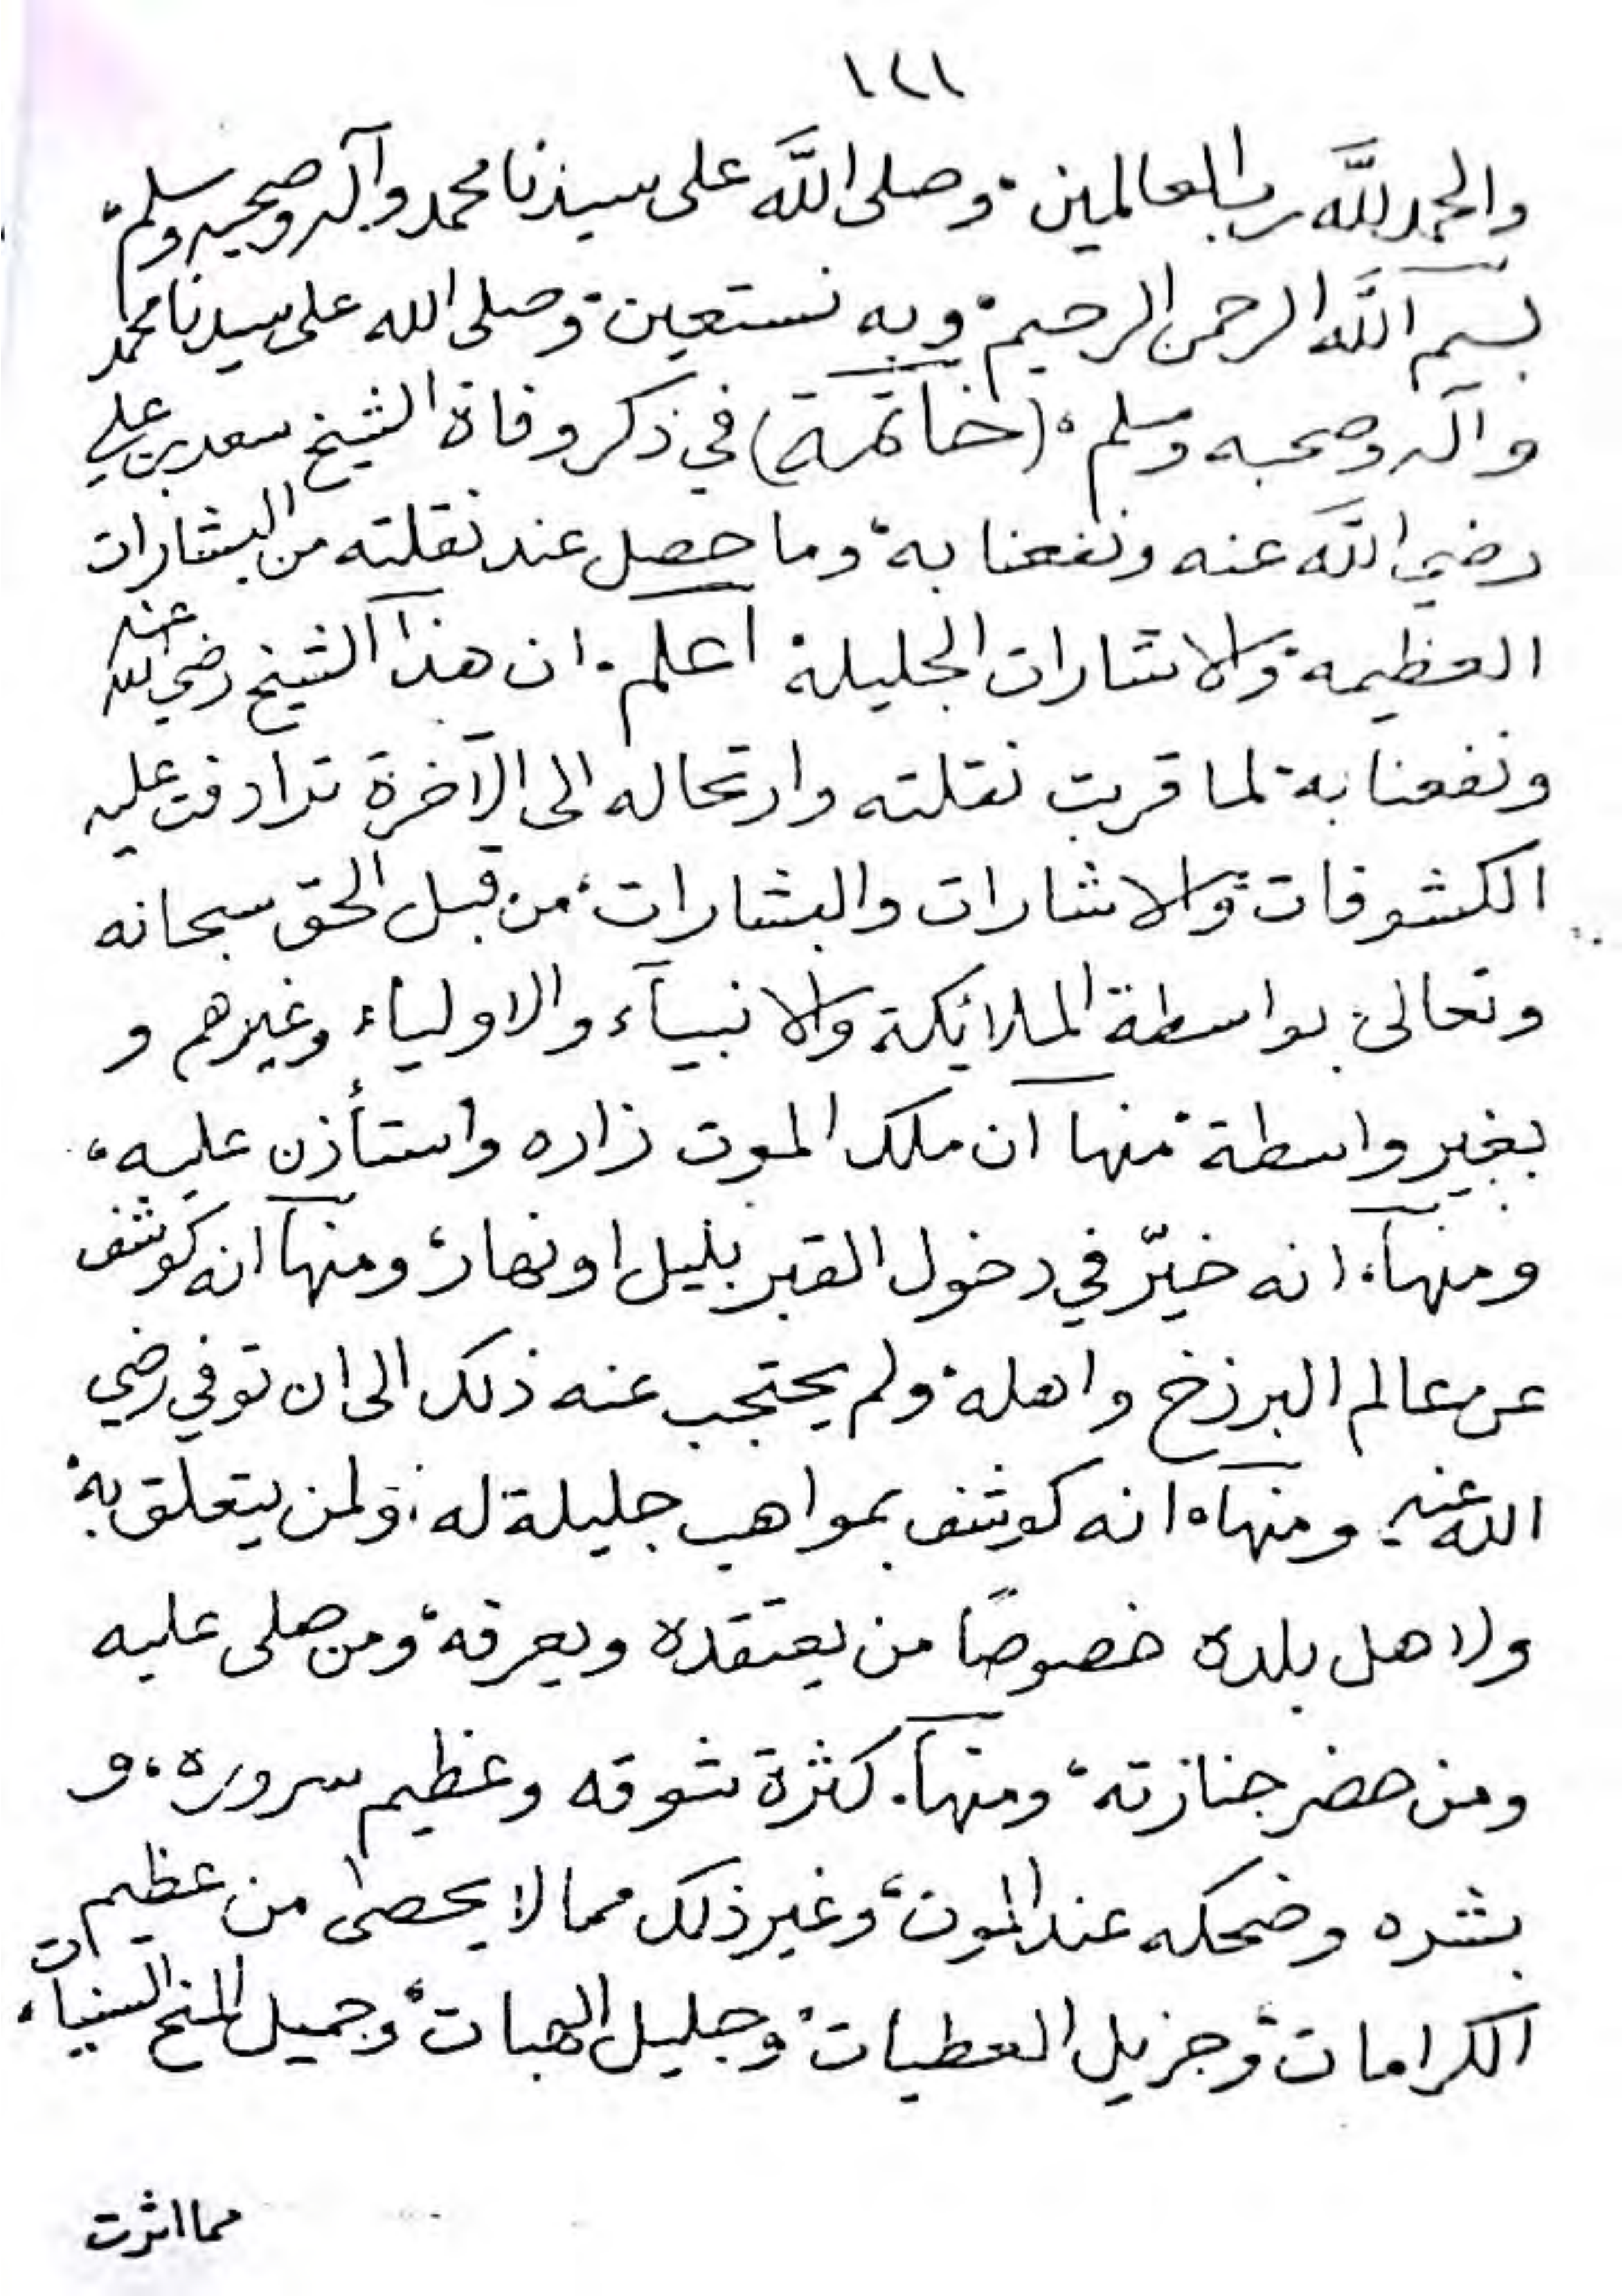 ١٢١
والحمد لله رب العالمين، وصلى الله على سيدنا محمد وآله وصحبه وسلم،
بسم الله الرحمن الرحيم، وبه نستعين، وصلى الله على سيدنا محمد
وآله وصحبه وسلم، (خاتمة) في ذكر وفاة الشيخ سعد بن علي
رضي الله عنه ونفعنا به، وما حصل عند نقلته من البشارات
العظيمة، والاشارات الجليلة، اعلم، ان هذا الشيخ رضي الله عنه
ونفعنا به، لما قربت نقلته وارتحاله الى الآخرة ترادفت عليه
الكشوفات، والاشارات والبشارات، من قبل الحق سبحانه
وتعالى، بواسطة الملائكة والانبيآء والاولياء وغيرهم و
بغير واسطة، منها ان ملك الموت زاره واستأذن عليه،
ومنها، انه خيّر في دخول القبر بليل او نهار، ومنها انه كوشف
عن عالم البرزخ واهله، ولم يحتجب عنه ذلك الى ان توفي رضي
الله عنه، ومنها، انه كوشف بمواهب جليلة له، ولمن يتعلق به،
ولاهل بلده خصوصًا من يعتقده ويعرفه، ومن صلى عليه
ومن حضر جنازته، ومنها، كثرة شوقه وعظيم سروره، و
بشره وضحكه عند الموت، وغير ذلك مما لا يحصى من عظيم
الكرامات، وجزيل العطيات، وجليل الهبات، وجميل المنح السنيات،
مما اثرت